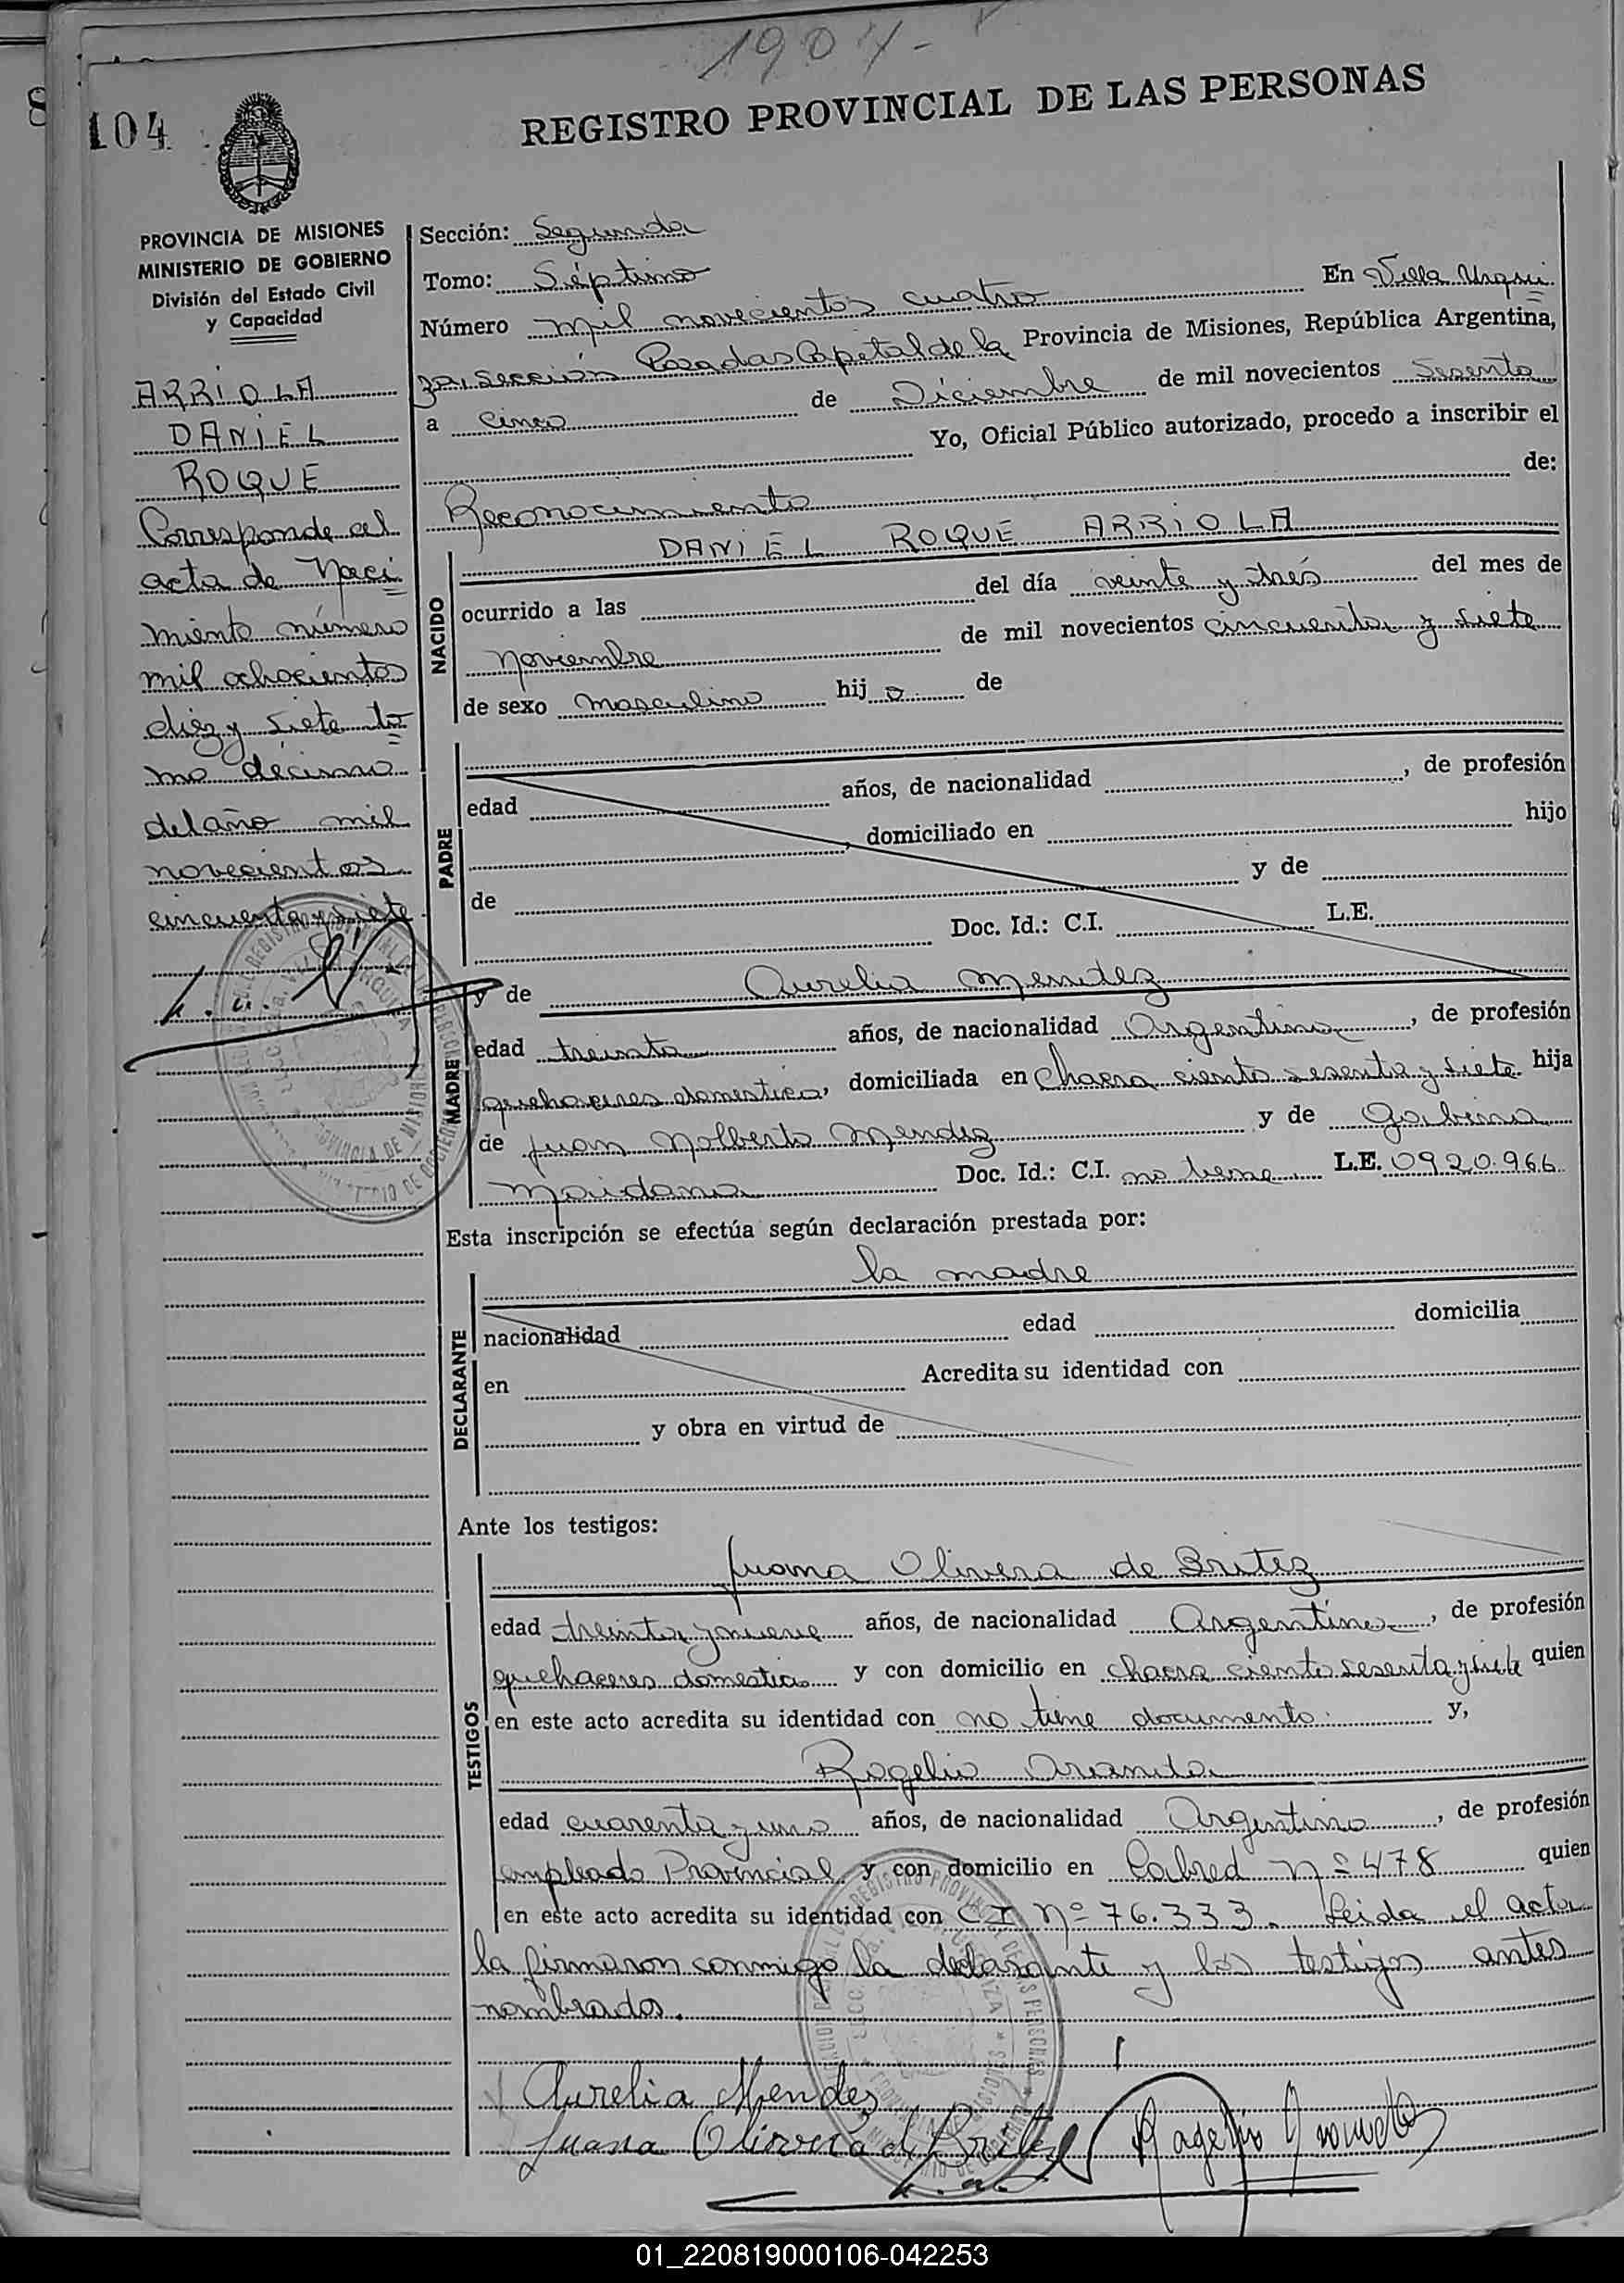 1904-
104
REGISTRO PROVINCIAL DE LAS PERSONAS
PROVINCIA DE MISIONES
MINISTERIO DE GOBIERNO
División del Estado Civil
y Capacidad
ARRIOLA
DANIEL
ROQUE
Corresponde al
acta de Naci
miento número
mil ochocientos
diez y siete to
mo décimo
del año mil
novecientos
cincuenta y siete
Sección: Segunda
Tomo: Séptimo
Número mil novecientos cuatro En Villa Urqui
za, Sección Posadas Capital de la Provincia de Misiones, República Argentina,
a cinco de Diciembre de mil novecientos Sesenta
Yo, Oficial Público autorizado, procedo a inscribir el
Reconocimiento de:
NACIDO
DANIEL ROQUE ARRIOLA
ocurrido a las del día veinte y trés del mes de
noviembre de mil novecientos cincuenta y siete
de sexo masculino hijo de
PADRE
edad años, de nacionalidad , de profesión
, domiciliado en hijo
de y de
Doc. Id.: C.I. L.E.
MADRE
y de Aurelia Mendez
edad treinta años, de nacionalidad Argentina, de profesión
quehaceres domestico, domiciliada en Chacra ciento sesenta y siete hija
de Juan Nolberto Mendez y de Gabina
Maidana Doc. Id.: C.I. no tiene L.E. 0920.966
Esta inscripción se efectúa según declaración prestada por:
DECLARANTE
la madre
nacionalidad edad domicilia
en Acredita su identidad con
y obra en virtud de
Ante los testigos:
TESTIGOS
Juana Olivera de Britez
edad treinta y nueve años, de nacionalidad Argentina, de profesión
quehaceres domestico y con domicilio en chacra ciento sesenta y siete quien
en este acto acredita su identidad con no tiene documento. y,
Rogelio Aranda
edad cuarenta y uno años, de nacionalidad Argentino, de profesión
empleado Provincial y con domicilio en Cabred nº 478 quien
en este acto acredita su identidad con CI nº 76.333. Leida el acta
la firmaron conmigo la declarante y los testigos antes
nombrados.
Aurelia Mendez
Juana Olivera d Britez
01_220819000106-042253